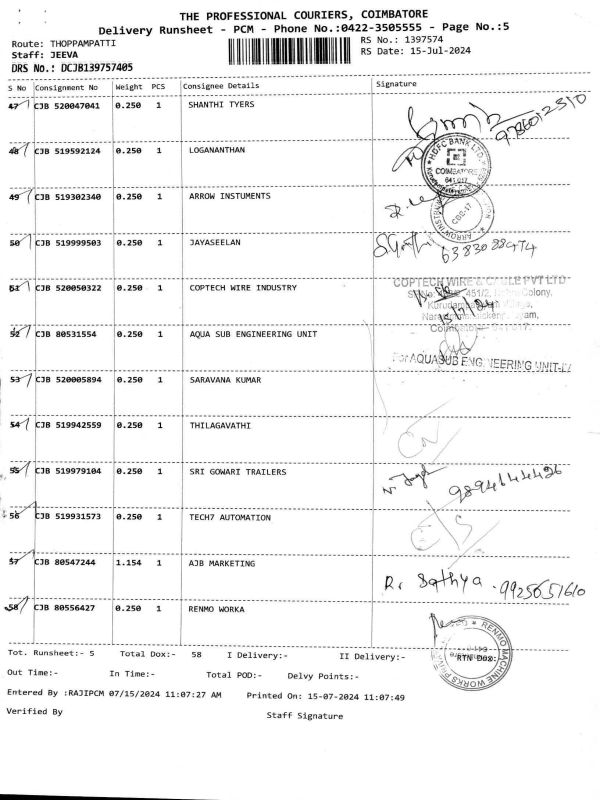 THE PROFESSIONAL COURIERS, COIMBATORE
Delivery Runsheet - PCM - Phone No.:0422-3505555 - Page No.:5
Route: THOPPAMPATTI RS No.: 1397574
Staff: JEEVA RS Date: 15-Jul-2024
DRS No.: DCJB139757405
S No Consignment No Weight PCS Consignee Details Signature
47 CJB 520047041 0.250 1 SHANTHI TYERS
48 CJB 519592124 0.250 1 LOGANANTHAN
HDFC BANK LTD.
COIMBATORE
641 017
49 CJB 519302340 0.250 1 ARROW INSTUMENTS
CBE-17
50 CJB 519999503 0.250 1 JAYASEELAN 6383088974
51 CJB 520050322 0.250 1 COPTECH WIRE INDUSTRY
COPTECH WIRE & CABLE PVT LTD
52 CJB 80531554 0.250 1 AQUA SUB ENGINEERING UNIT
For AQUASUB ENGINEERING UNIT-
53 CJB 520005894 0.250 1 SARAVANA KUMAR
54 CJB 519942559 0.250 1 THILAGAVATHI
55 CJB 519979104 0.250 1 SRI GOWARI TRAILERS 9894644426
56 CJB 519931573 0.250 1 TECH7 AUTOMATION
57 CJB 80547244 1.154 1 AJB MARKETING R. Sathya 9925651610
58 CJB 80556427 0.250 1 RENMO WORKA
RENMO MACHINE WORKS
Tot. Runsheet:- 5 Total Dox:- 58 I Delivery:- II Delivery:- RTN Dox:
Out Time:- In Time:- Total POD:- Delvy Points:-
Entered By :RAJIPCM 07/15/2024 11:07:27 AM Printed On: 15-07-2024 11:07:49
Verified By Staff Signature